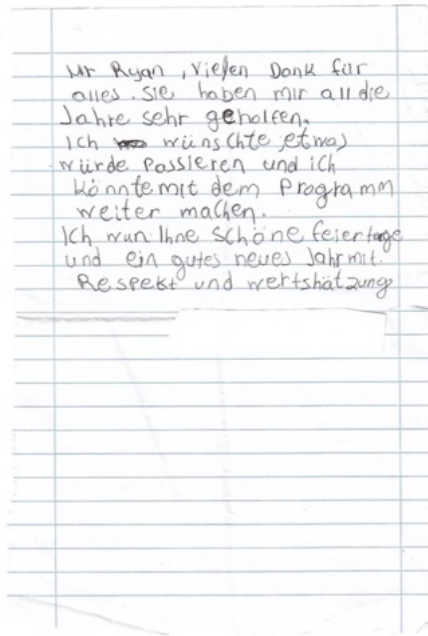 Mr Ryan, vielen Dank für
alles. Sie haben mir all die
Jahre sehr geholfen.
Ich wünschte, etwas
würde Passieren und ich
könnte mit dem Programm
weiter machen.
Ich wun Ihne schöne feiertage
und ein gutes neues Jahr mit.
Respekt und wertshätzung